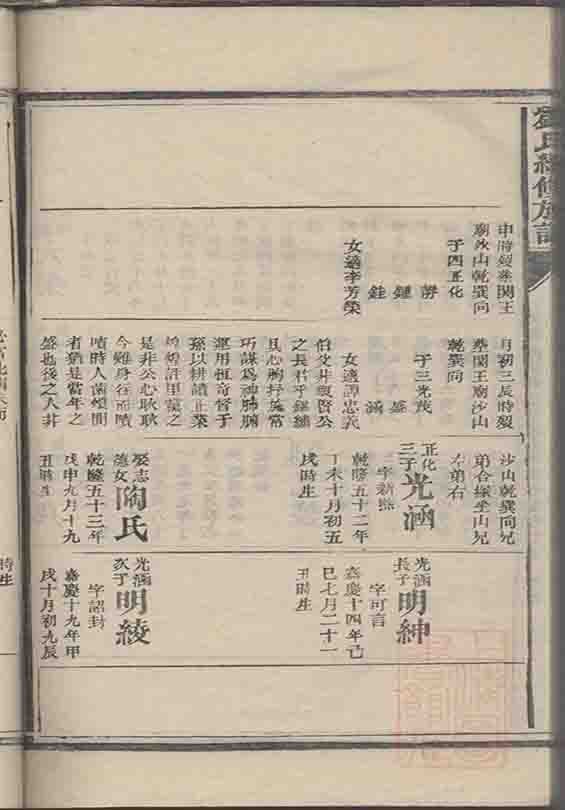 氏續修族譜
申時歿葬関王
廟沙山乾巽向
子四正化
鐘
銈
女適李芳榮
月初三辰時歿
葬関王廟沙山
乾巽向
子三光茂
盛
涵
女適譚忠義
伯父井
賢公
之長君子
且心胸
常
巧謀爲
運用恒奇督子
孫以耕讀正業
許里黨之
是非公心耿耿
今雖身往而
嘖時人
者猶是當年之
盛也後之人
沙山乾巽向兄
弟合塚坐山兄
左弟右
正化三子光涵
字
乾隆五十二年
丁未十月初五
戌時生
娶志
遠女陶氏
乾隆五十三年
戊申九月十九
丑時生
光涵長子明紳
字可言
嘉慶十四年己
巳七月二十一
丑時生
光涵次子明綾
字詔封
嘉慶十九年甲
戌十月初九辰
時生